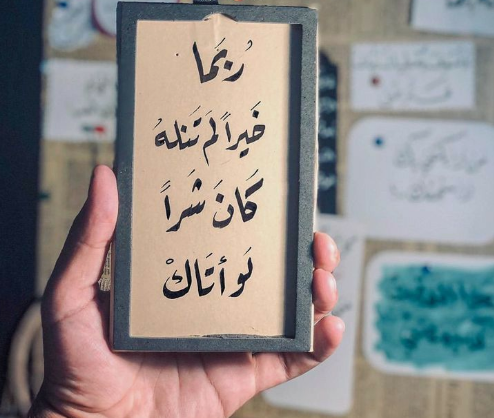 رُبَمَا
خَيراً لَم تَنلهُ
كَانَ شَراً
لَو أتَاكْ